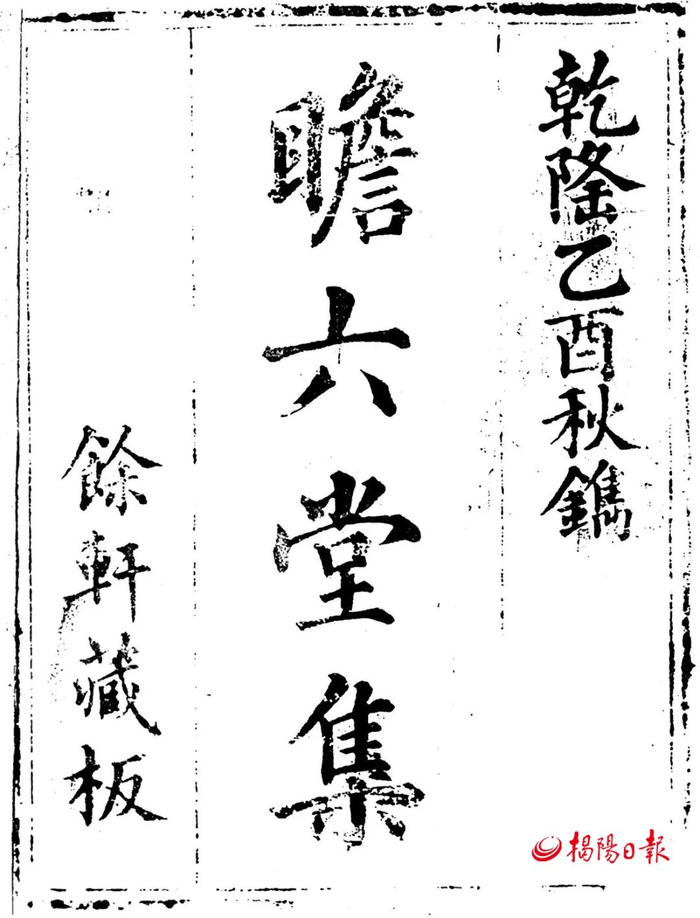 乾隆乙酉秋鐫
瞻六堂集
餘軒藏板
揭陽日報